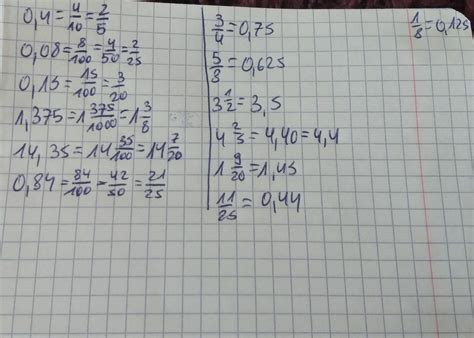 0,4 = 4/10 = 2/5
0,08 = 8/100 = 4/50 = 2/25
0,15 = 15/100 = 3/20
1,375 = 1 375/1000 = 1 3/8
14,35 = 14 35/100 = 14 7/20
0,84 = 84/100 = 42/50 = 21/25
3/4 = 0,75
5/8 = 0,625
3 1/2 = 3,5
4 2/5 = 4,40 = 4,4
1 9/20 = 1,45
11/25 = 0,44
1/8 = 0,125